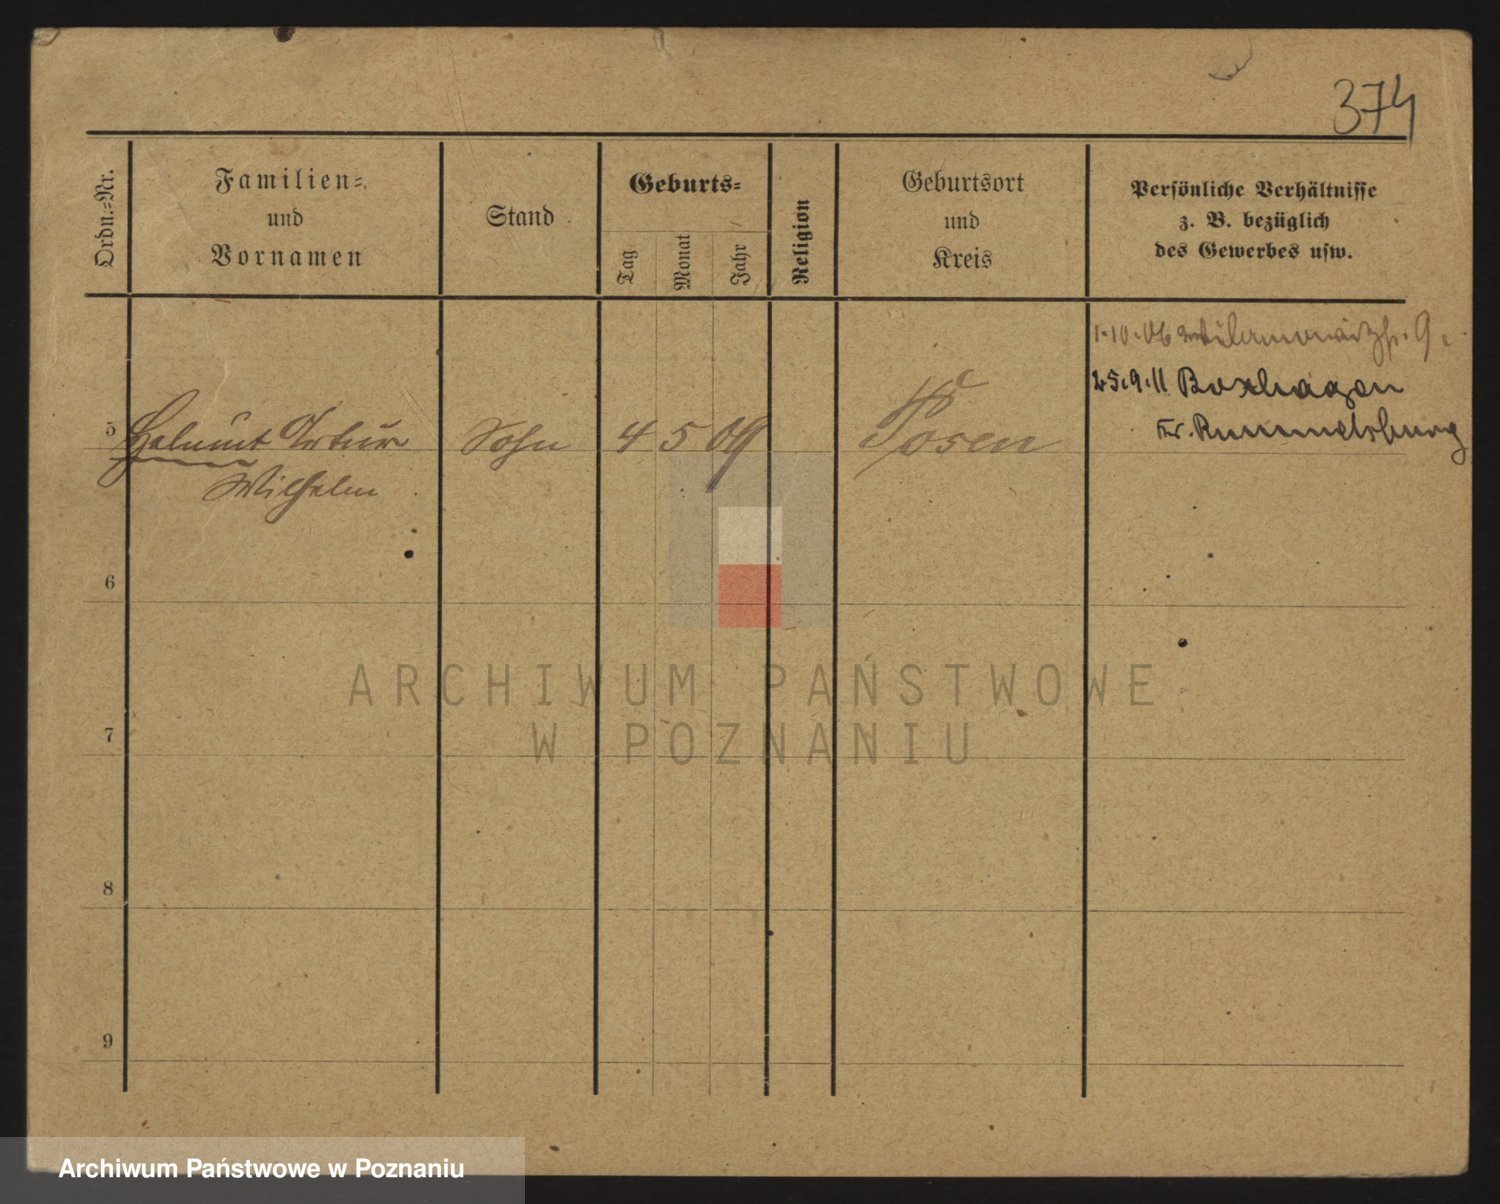 374
Ordn.=Nr.
Familien=
und
Vornamen
Stand
Geburts=
Tag
Monat
Jahr
Religion
Geburtsort
und
Kreis
Persönliche Verhältnisse
z. B. bezüglich
des Gewerbes usw.
1.10.06 9.
25.9.11 Boxhagen
Rummelsburg
5 Helmut Artur Sohn 4 5 09 Posen
Wilhelm
6
7
8
9
ARCHIWUM PAŃSTWOWE
W POZNANIU
Archiwum Państwowe w Poznaniu